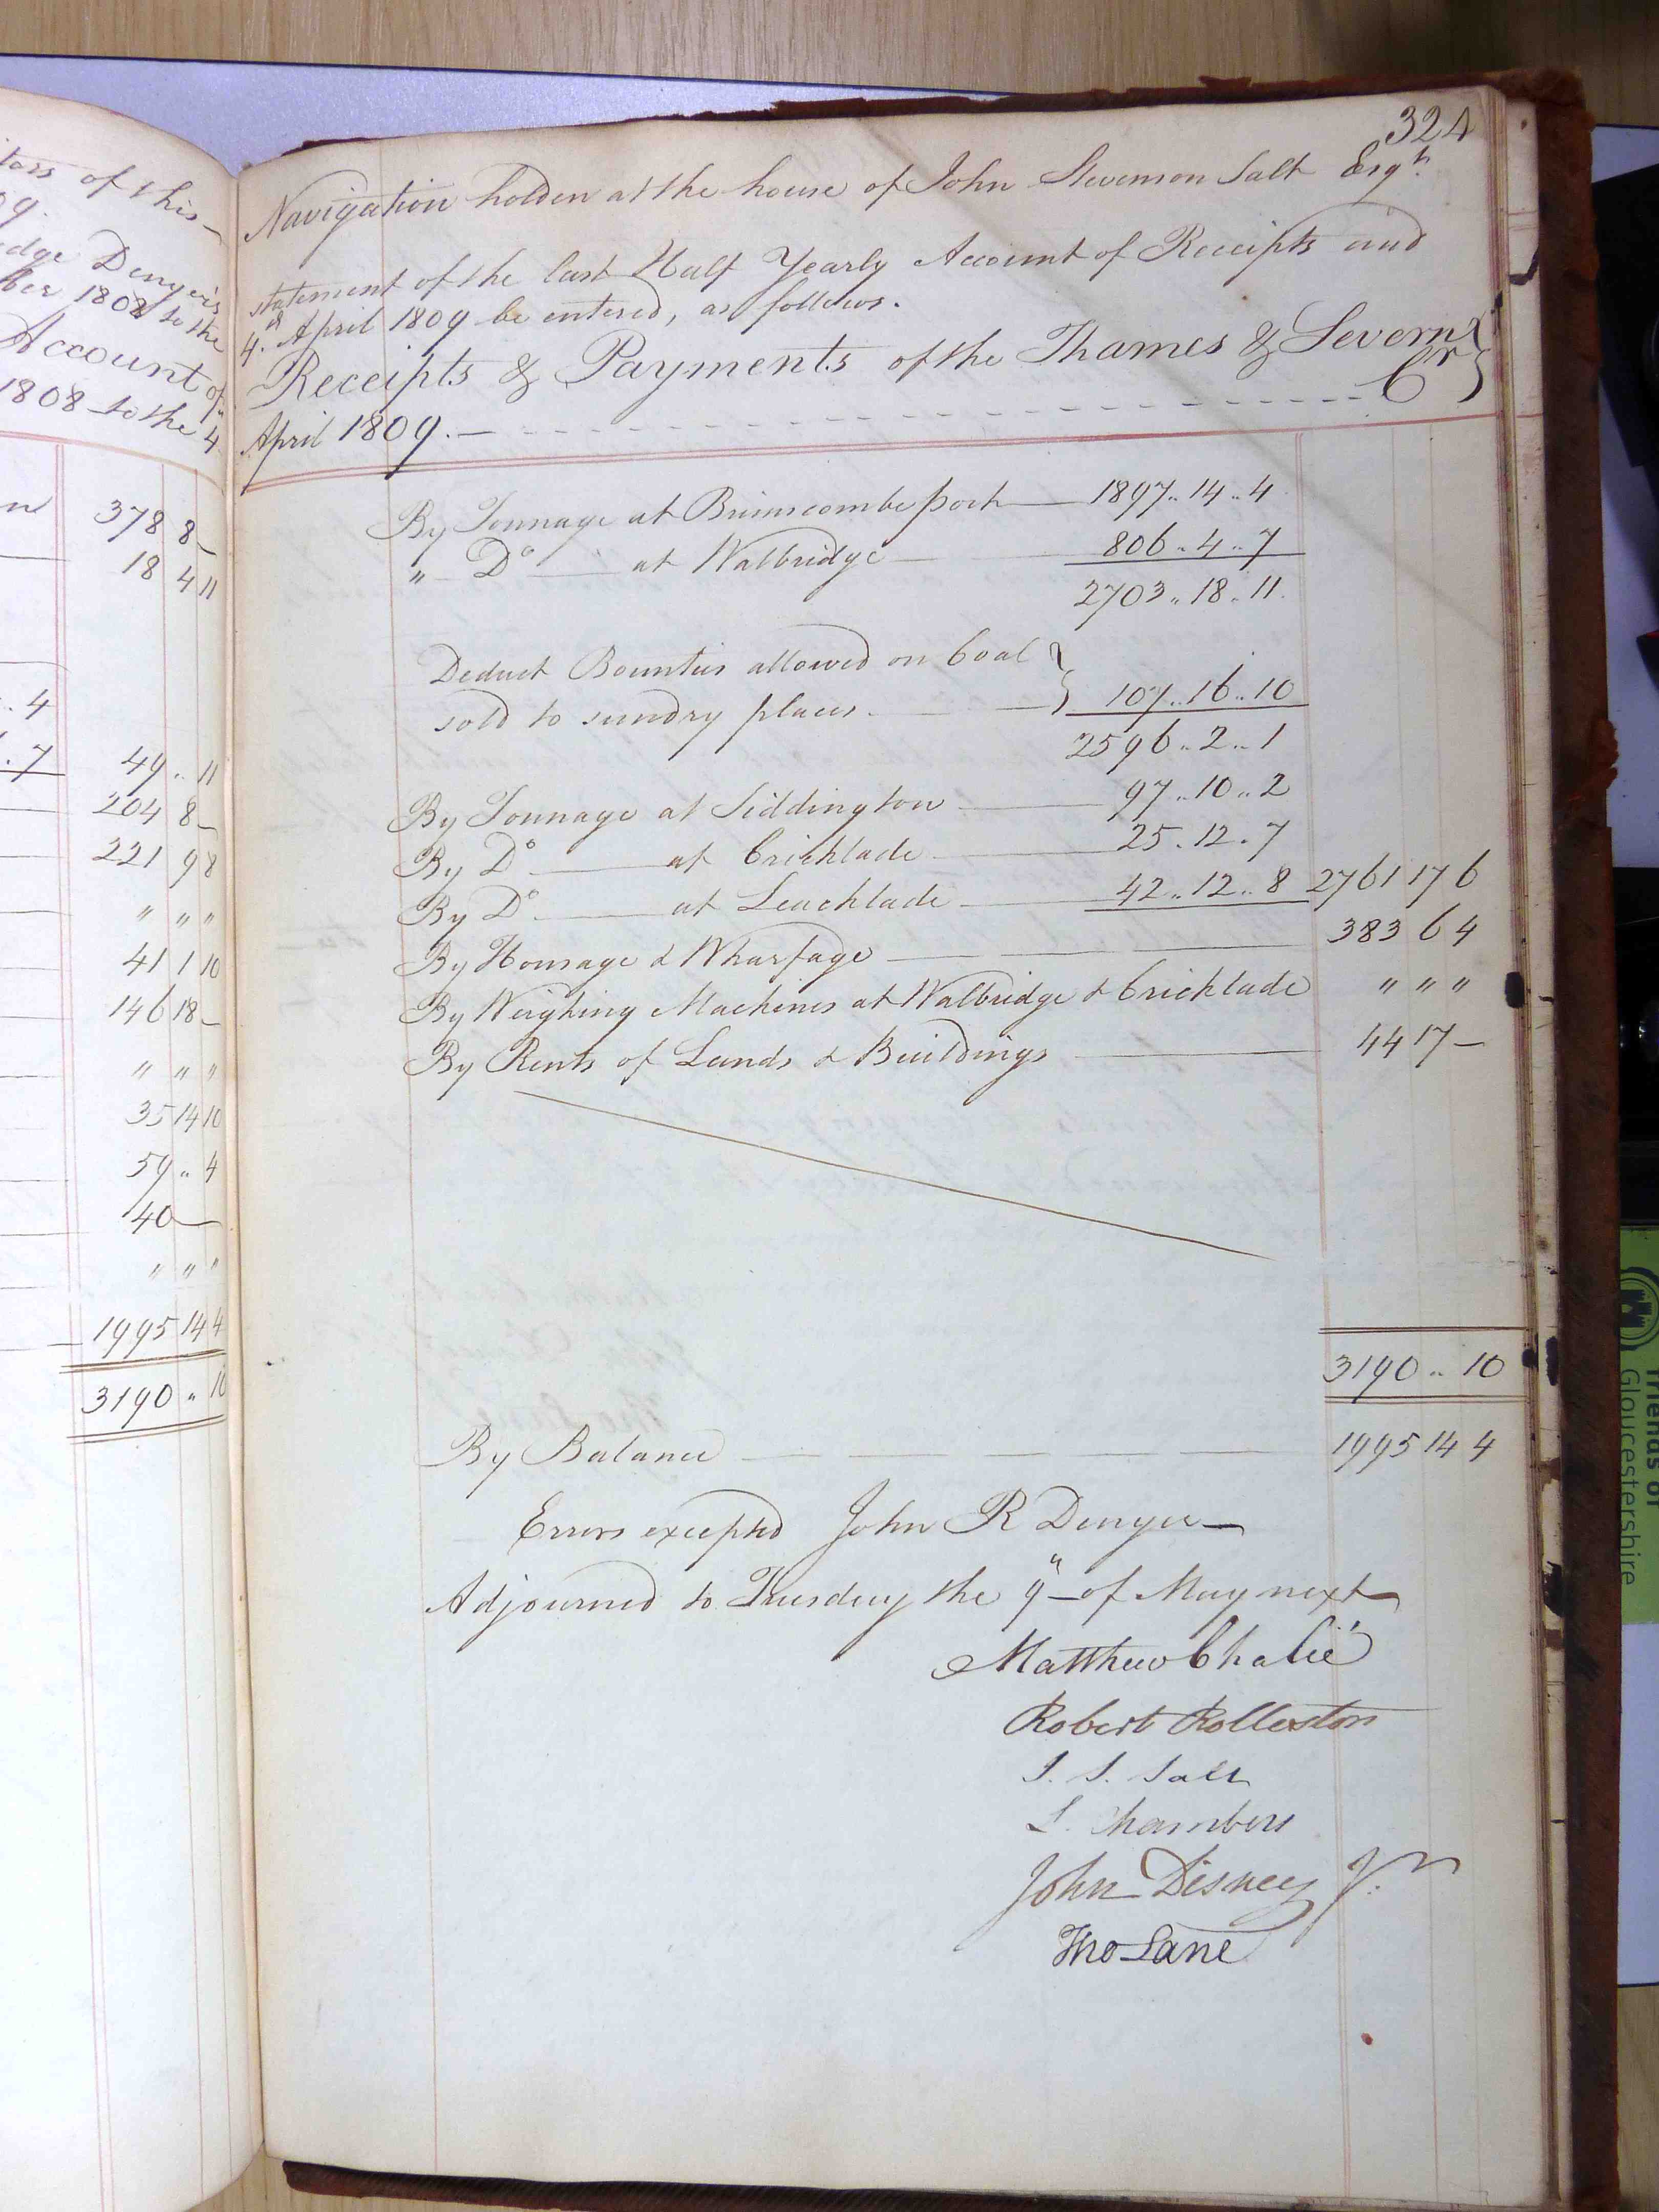 tors of this
09.
edge Denyer's
ber 1808 to the
Account of
1808 to the 4
378 8 –
18 4 11
.. 4
.. 7 49 .. 11
204 8 –
221 9 8
" " "
41 1 10
146 18 –
" " "
35 14 10
59 .. 4
40 —
" " "
1995 14 4
3190 " 10
324
Navigation holden at the house of John Stevenson Salt Esqr.
statement of the last Half Yearly Account of Receipts and
4th April 1809 be entered, as follows.
Receipts & Payments of the Thames & Severn }
April 1809. — Cr }
By Tonnage at Brimscombe port — 1897 .. 14 .. 4
" Do — at Walbridge — 806 .. 4 .. 7
2703 .. 18 .. 11
Deduct Bounties allowed on Coal }
sold to sundry places. — } 107 .. 16 .. 10
2596 .. 2 .. 1
By Tonnage at Siddington — 97 .. 10 .. 2
By Do — at Cricklade — 25 .. 12 .. 7
By Do — at Leachlade — 42 .. 12 .. 8 2761 17 6
By Housage & Wharfage — 383 6 4
By Weighing Machines at Walbridge & Cricklade " " "
By Rents of Lands & Buildings — 44 17 –
3190 .. 10
By Balance — 1995 14 4
Errors excepted John R Denyer
Adjourned to Tuesday the 9th of May next
Matthew Chalié
Robert Rolleston
J. S. Salt
S. Chambers
John Disney Jr.
Tho Lane
Friends of
Gloucestershire